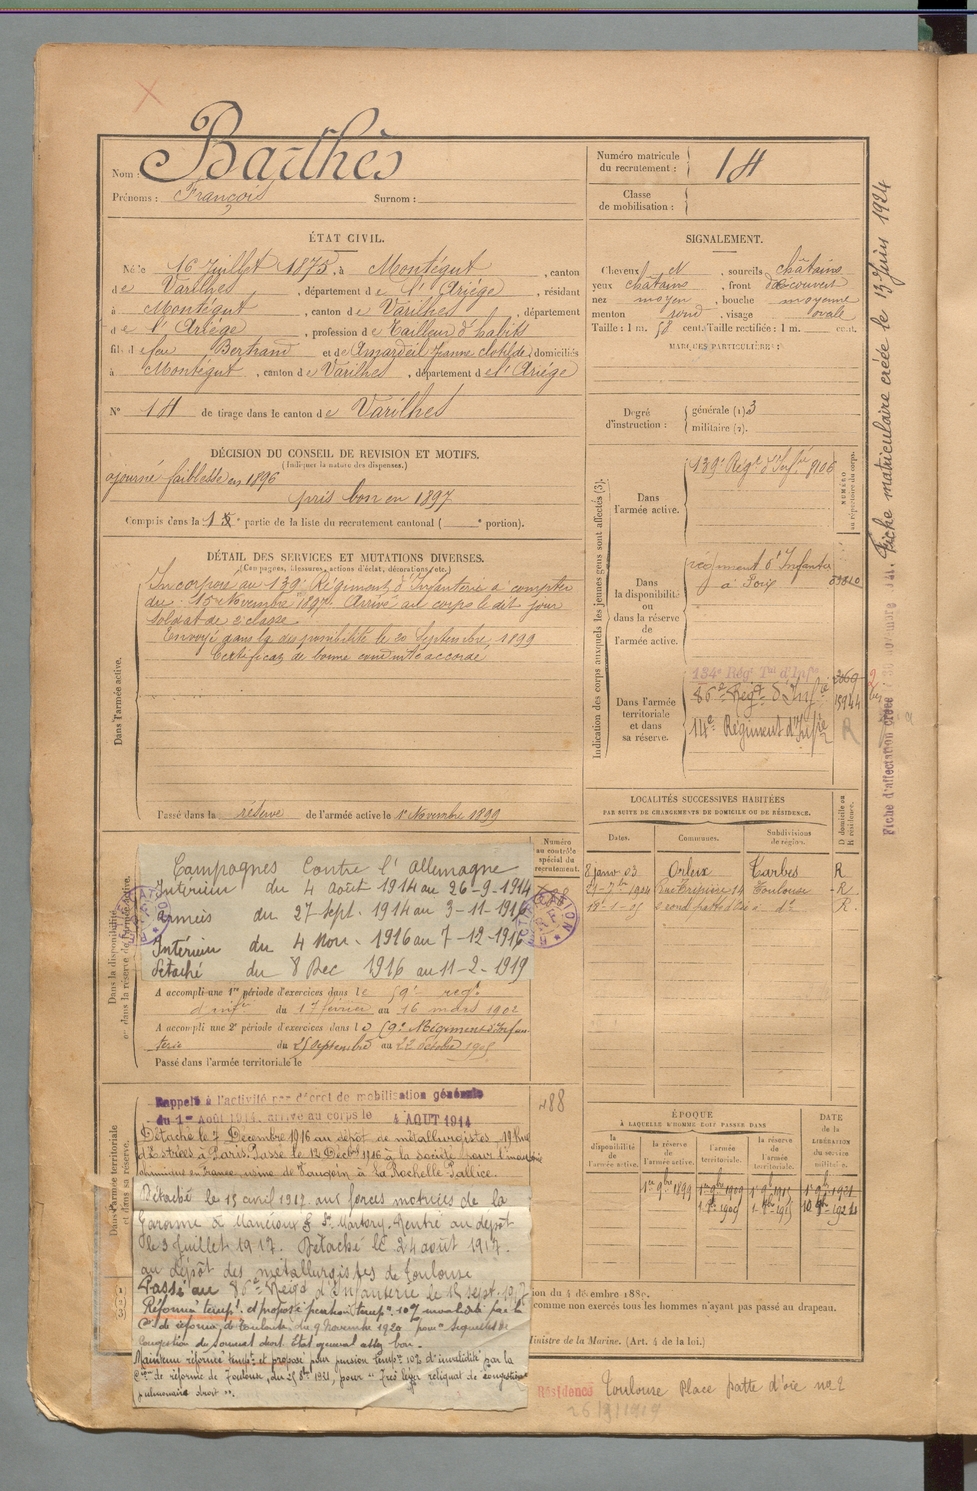 Barthès
Nom :
Prénoms : François Surnom :
Numéro matricule
du recrutement : 14
Classe
de mobilisation :
ÉTAT CIVIL.
Né le 16 Juillet 1875, à Montégut, canton
de Varilhes, département de l'Ariège, résidant
à Montégut, canton de Varilhes, département
de l'Ariège, profession de Tailleur d'habits
fils de feu Bertrand et de Amardeil Jeanne Clotilde, domiciliés
à Montégut, canton de Varilhes, département de l'Ariège
N° 14 de tirage dans le canton de Varilhes
SIGNALEMENT.
Cheveux N, sourcils châtains
yeux châtains, front découvert
nez moyen, bouche moyenne
menton rond, visage ovale
Taille : 1 m. 58 cent. Taille rectifiée : 1 m. cent.
MARQUES PARTICULIÈRES :
Degré
d'instruction :
générale (1) 3
militaire (2).
DÉCISION DU CONSEIL DE REVISION ET MOTIFS.
(Indiquer la nature des dispenses.)
ajourné faiblesse en 1896
pris bon en 1897
Compris dans la 1 e partie de la liste du recrutement cantonal ( e portion).
DÉTAIL DES SERVICES ET MUTATIONS DIVERSES.
(Campagnes, blessures, actions d'éclat, décorations, etc.)
Dans l'armée active.
Incorporé au 139e Régiment d'Infanterie à compter
du 15 Novembre 1897. Arrivé au corps le dit jour
Soldat de 2e classe
Envoyé dans la disponibilité le 20 Septembre 1899
Certificat de bonne conduite accordé
Passé dans la réserve de l'armée active le 1er Novembre 1899
Indication des corps auxquels les jeunes gens sont affectés (3).
NUMÉRO
au répertoire du corps.
Dans
l'armée active.
139e Régt d'Infie 9106
Dans
la disponibilité
ou
dans la réserve
de
l'armée active.
régiment d'Infanterie
à Foix
Dans l'armée
territoriale
et dans
sa réserve.
134e Rég Tal d'Infie
86e Régt d'Infie 15744
14e Régiment d'Infie R
Fiche matriculaire créée le 13 Juin 1924
Fiche d'affectation créée
LOCALITÉS SUCCESSIVES HABITÉES
PAR SUITE DE CHANGEMENTS DE DOMICILE OU DE RÉSIDENCE.
Dates. Communes. Subdivisions
de région.
D domicile ou
R résidence.
8 janv 03 Orleix Tarbes R
Toulouse R
de R.
Dans la disponibilité
ou dans la réserve de l'armée active.
Numéro
au contrôle
spécial du
recrutement.
Campagnes Contre l'allemagne
Intérieur du 4 août 1914 au 26-9-1914
Armées du 27 sept. 1914 au 3-11-1916
Intérieur du 4 Nov. 1916 au 7-12-1916
Détaché du 8 Dec 1916 au 11-2-1919
A accompli une 1re période d'exercices dans le 59e regt
d'infie du 17 février au 16 mars 1902
A accompli une 2e période d'exercices dans le 59e Régiment d'Infan-
terie du 25 Septembre au 22 octobre 1905
Passé dans l'armée territoriale le
Dans l'armée territoriale
et dans sa réserve.
Rappelé à l'activité par décret de mobilisation générale
du 1er Août 1914, arrivé au corps le 4 AOUT 1914
Détaché le 7 Decembre 1916 au dépôt de métallurgistes
d'Estrées à Paris. Passé le 12 Décbre 1916 à la société pour l'industrie
chimique en France, usine de Laugoin à La Rochelle Pallice.
Détaché le 15 avril 1917 aux forces motrices de la
Garonne à Mancioux St Martory. Rentré au dépôt
le 3 Juillet 1917. Détaché le 24 août 1917.
au dépôt des métallurgistes de Toulouse
Passé au 86e Régt d'Infanterie le 1er sept. 1917
Réformé tempe. et proposé pension tempre 10% invalidité par la
Con de réforme de Toulouse du 9 Novembre 1920 pour "séquelles de
congestion du sommet droit. Etat général assez bon.
Maintenu réformé tempre et proposé pour pension tempre 10% d'invalidité par la
Con de réforme de Toulouse, du 25 8bre 1921, pour "Très léger reliquat de congestion
pulmonaire droit".
488
ÉPOQUE
À LAQUELLE L'HOMME DOIT PASSER DANS
DATE
de la
LIBÉRATION
du service
militaire.
la
disponibilité
de
l'armée active.
la réserve
de
l'armée active.
l'armée
territoriale.
la réserve
de
l'armée
territoriale.
1er 9bre 1899
du 4 décembre 1889.
comme non exercés tous les hommes n'ayant pas passé au drapeau.
Ministre de la Marine. (Art. 4 de la loi.)
Résidence Toulouse Place patte d'oie no 2